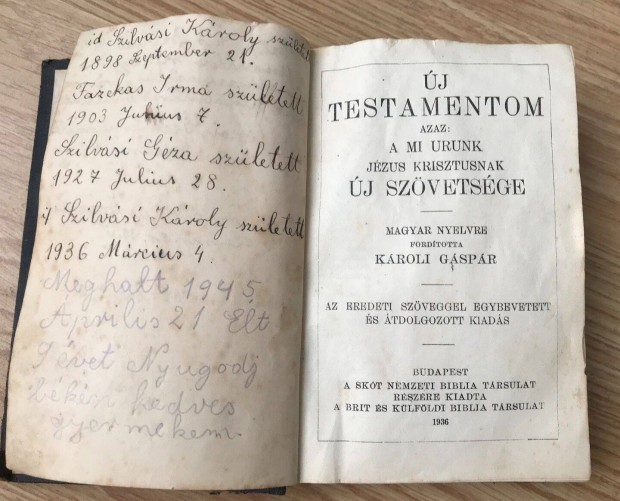 id Szilvási Károly született
1898 Szeptember 21.
Fazekas Irma született
1903 Julius 7.
Szilvási Géza született
1927 Julius 28.
Szilvási Károly született
1936 Március 4.
Meghalt 1945
Április 21 Élt
9 évet Nyugodj
békén kedves
gyermekem.
ÚJ
TESTAMENTOM
AZAZ:
A MI URUNK
JÉZUS KRISZTUSNAK
ÚJ SZÖVETSÉGE
MAGYAR NYELVRE
FORDÍTOTTA
KÁROLI GÁSPÁR
AZ EREDETI SZÖVEGGEL EGYBEVETETT
ÉS ÁTDOLGOZOTT KIADÁS
BUDAPEST
A SKÓT NEMZETI BIBLIA TÁRSULAT
RÉSZÉRE KIADTA
A BRIT ÉS KÜLFÖLDI BIBLIA TÁRSULAT
1936